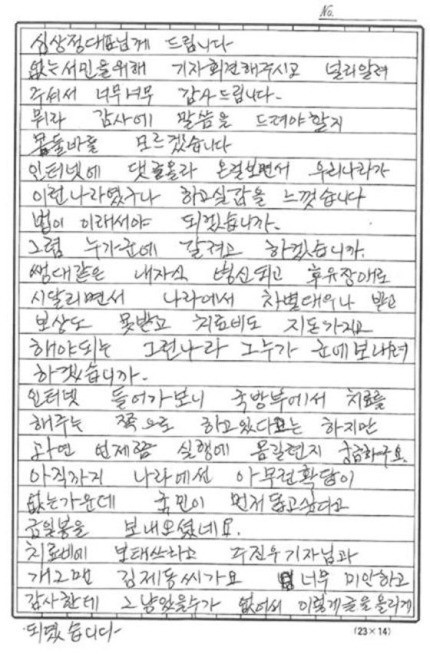 No.
심상정대표님께 드립니다
없는서민을위해 기자회견해주시고 널리알려
주셔서 너무너무 감사드립니다.
뭐라 감사에 말씀을 드려야할지
몸둘바를 모르겠습니다
인터넷에 댓글올라 온걸보면서 우리나라가
이런나라였구나 하고실감을 느꼈습니다
법이 이래서야 되겠습니까.
그럼 누가군에 갈려고 하겠습니까.
쌩때같은 내자식 병신되고 후유장애로
시달리면서 나라에서 차별대우나 받고
보상도 못받고 치료비도 지돈가지고
해야되는 그런나라 그누가 군에보내려
하겠습니까.
인터넷 들어가보니 국방부에서 치료를
해주는 쪽으로 하고있다고는 하지만
과연 언제쯤 실행에 옴길런지 궁금하구요.
아직까지 나라에선 아무런확답이
없는가운데 국민이 먼저돕고싶다고
금일봉을 보내오셨네요.
치료비에 보태쓰라고 주진우기자님과
개그맨 김제동씨가요 너무 미안하고
감사한데 그냥있을수가 없어서 이렇게글을올리게
되였습니다
(23×14)